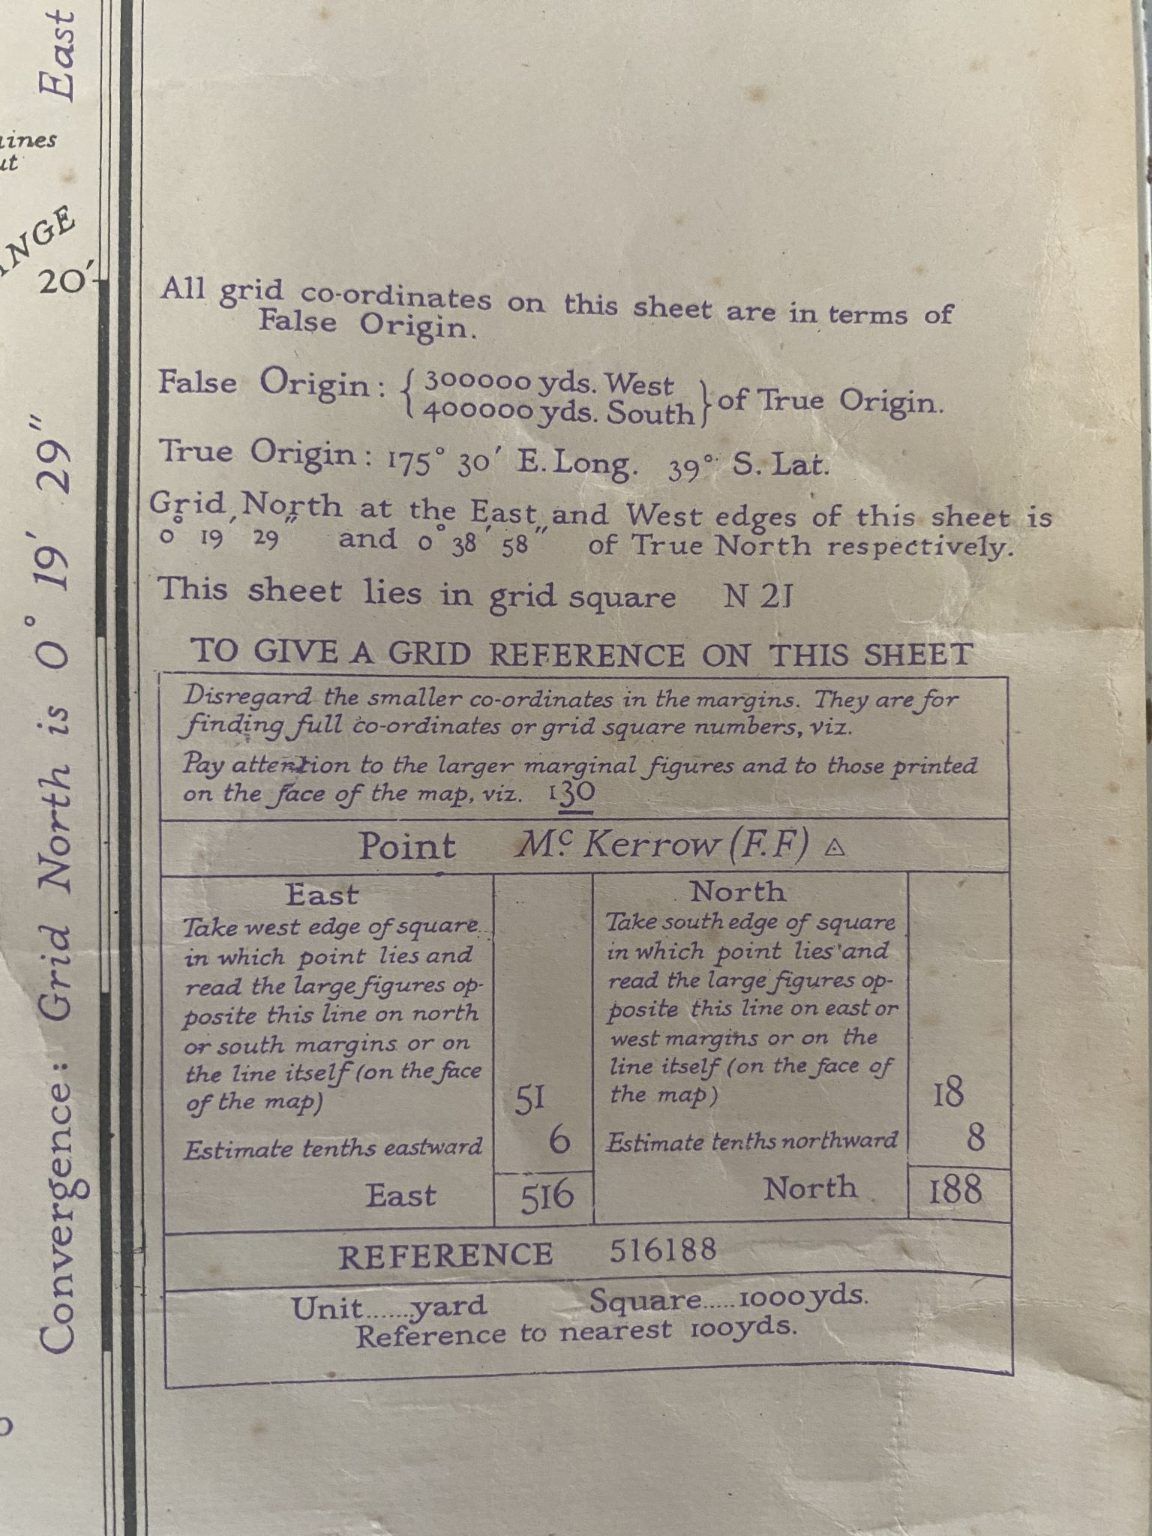 East
ut
20′
Convergence: Grid North is 0° 19′ 29″
All grid co-ordinates on this sheet are in terms of
False Origin.
False Origin: { 300000 yds. West
400000 yds. South } of True Origin.
True Origin: 175° 30′ E. Long. 39° S. Lat.
Grid North at the East and West edges of this sheet is
0° 19′ 29″ and 0° 38′ 58″ of True North respectively.
This sheet lies in grid square N 21
TO GIVE A GRID REFERENCE ON THIS SHEET
Disregard the smaller co-ordinates in the margins. They are for
finding full co-ordinates or grid square numbers, viz.
Pay attention to the larger marginal figures and to those printed
on the face of the map, viz. 130
Point Mc Kerrow (F.F) ◬
East
Take west edge of square
in which point lies and
read the large figures op-
posite this line on north
or south margins or on
the line itself (on the face
of the map) 51
Estimate tenths eastward 6
East 516
North
Take south edge of square
in which point lies and
read the large figures op-
posite this line on east or
west margins or on the
line itself (on the face of
the map) 18
Estimate tenths northward 8
North 188
REFERENCE 516188
Unit......yard Square.....1000 yds.
Reference to nearest 100 yds.